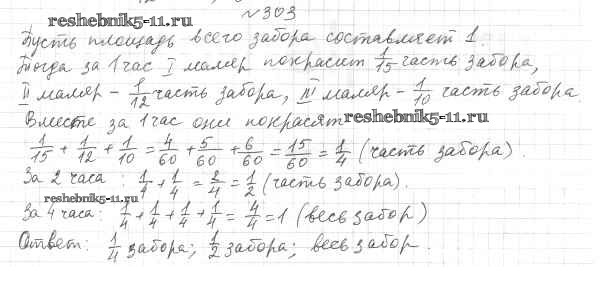 №303
reshebnik5-11.ru
Пусть площадь всего забора составляет 1.
Тогда за 1 час I маляр покрасит 1/15 часть забора,
II маляр - 1/12 часть забора, III маляр - 1/10 часть забора.
Вместе за 1 час они покрасят reshebnik5-11.ru
1/15 + 1/12 + 1/10 = 4/60 + 5/60 + 6/60 = 15/60 = 1/4 (часть забора).
За 2 часа: 1/4 + 1/4 = 2/4 = 1/2 (часть забора).
reshebnik5-11.ru
За 4 часа: 1/4 + 1/4 + 1/4 + 1/4 = 4/4 = 1 (весь забор)
Ответ: 1/4 забора; 1/2 забора; весь забор.